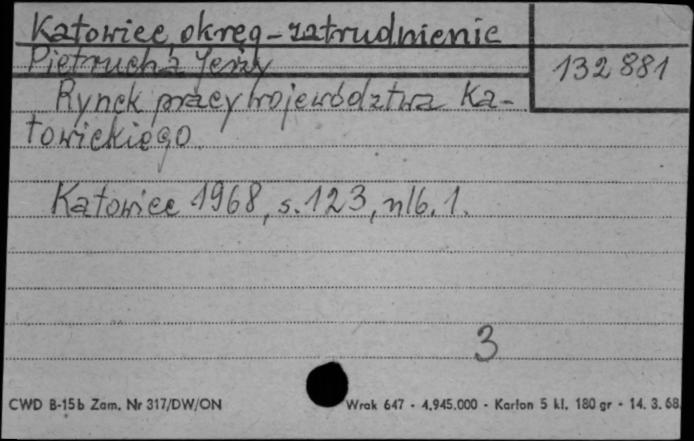 Katowice, okręg - zatrudnienie
Pietrucha Jerzy
132 881
Rynek pracy województwa Ka-
towickiego.
Katowice 1968, s. 123, nlb. 1.
3
CWD B-15b Zam. Nr 317/DW/ON
Wrak 647 - 4.945.000 - Karton 5 kl. 180 gr - 14. 3. 68.